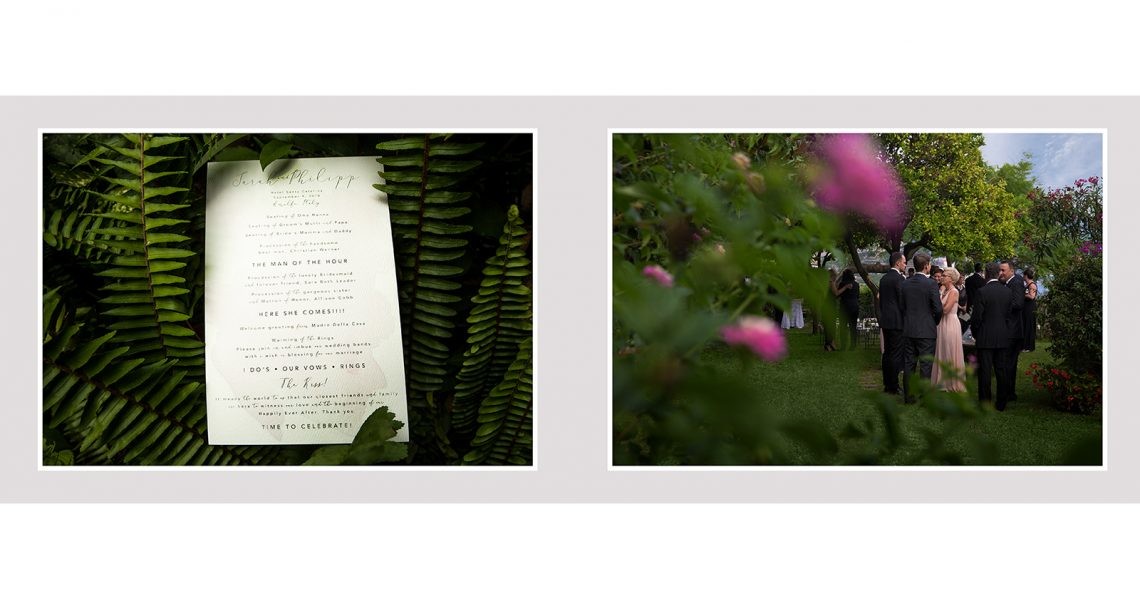 Sarah & Philipp
Hotel Santa Caterina
September 6, 2018
Amalfi, Italy
Seating of Oma Hanne
Seating of Groom's Mutti and Papa
Seating of Bride's Momma and Daddy
Procession of the handsome
best man, Christian Werner
THE MAN OF THE HOUR
Procession of the lovely Bridesmaid
and forever friend, Sara Beth
Procession of the gorgeous sister
and Matron of Honor, Allison Cobb
HERE SHE COMES!!!!
Welcome greeting from Madre Della Casa
Warming of the Rings
Please join in and imbue our wedding bands
with a wish or blessing for our marriage
I DO'S • OUR VOWS • RINGS
The Kiss!
It means the world to us that our closest friends and family
are here to witness our love and the beginning of our
Happily Ever After. Thank you
TIME TO CELEBRATE!